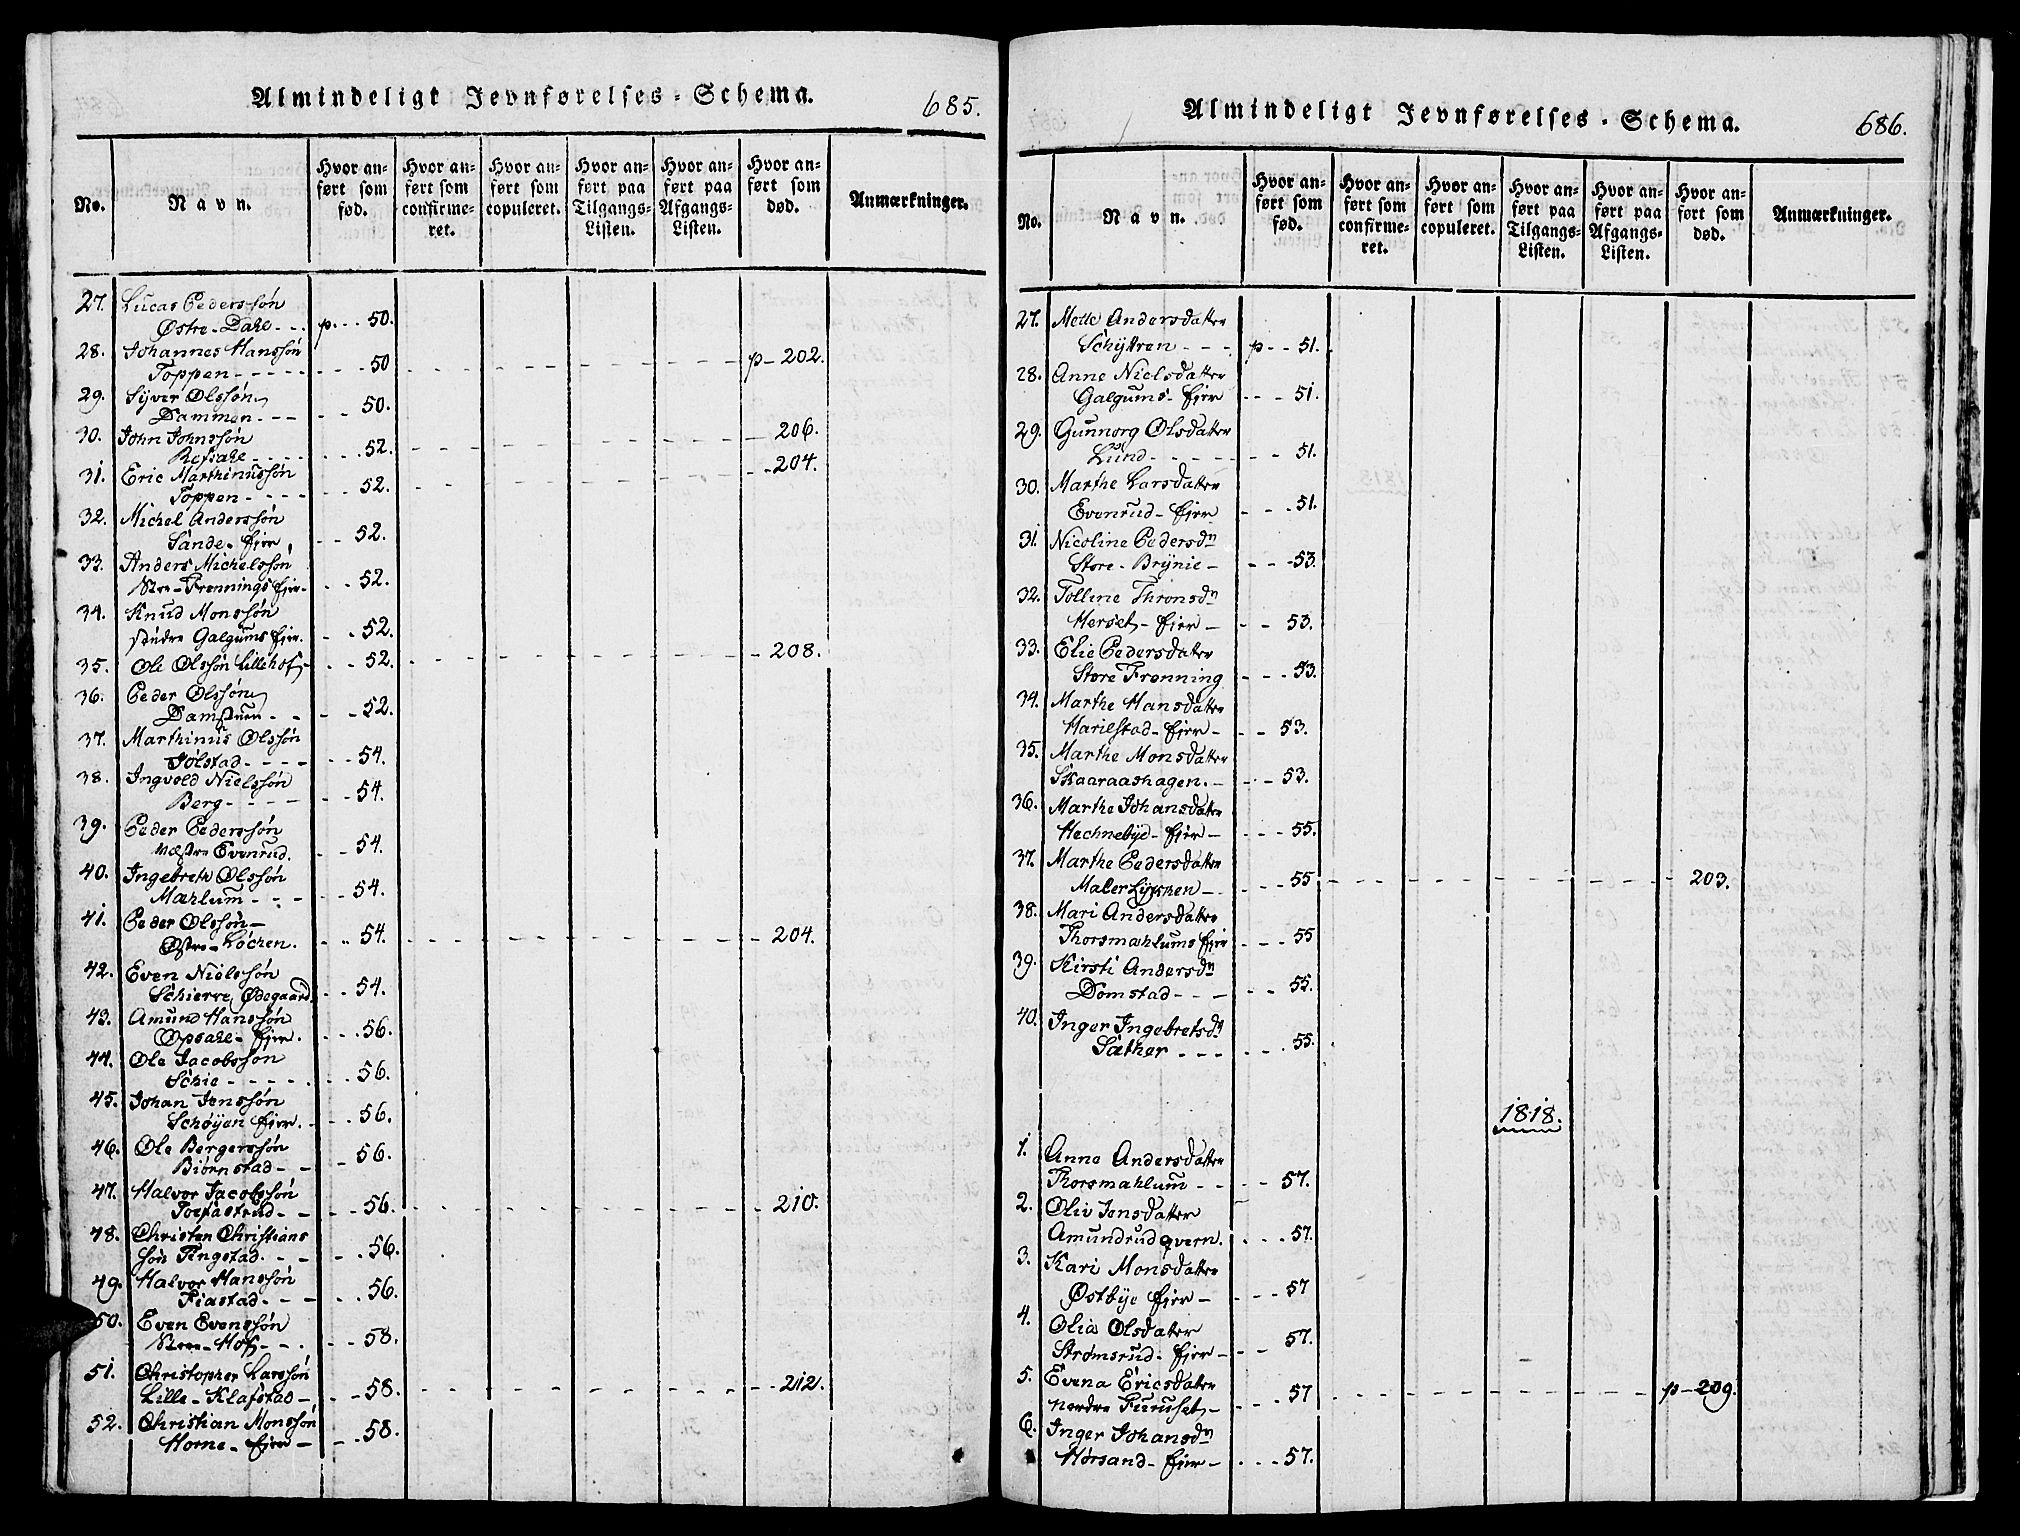 Almindeligt Jevnførelses-Schema.
685.
No.
Navn.
Hvor an-
ført som
fød.
Hvor an-
ført som
confirme-
ret.
Hvor an-
ført som
copuleret.
Hvor an-
ført paa
Tilgangs-
Listen.
Hvor an-
ført paa
Afgangs-
Listen.
Hvor an-
ført som
død.
Anmærkninger.
27. Lucas Pederssøn
Østre-Dahl - - p. - - 50.
28. Johannes Hanssøn
Toppen - - - - - - - 50 - - - - - p - 202.
29. Syver Olssøn
Dammen - - - - - 50.
30. John Johnssøn
Refsahl - - - - - - 52. - - - - - 206.
31. Eric Marthinussøn
Toppen - - - - - - 52. - - - - - 204.
32. Michel Anderssøn
Sande-Ejer - - 52.
33. Anders Michelssøn
Nere-Frønnings Ejer - - - 52.
34. Knud Monssøn
søndre Galgums Ejer. - - - 52.
35. Ole Olssøn Lillehof - - - 52. - - - - - 208.
36. Peder Olssøn
Damstuen - - - - - 52.
37. Marthinus Olssøn
Solstad - - - - - - 54.
38. Ingvold Nielssøn
Berg - - - - - - 54.
39. Peder Pederssøn
Vestre Evenrud. - - 54.
40. Ingebreth Olssøn
Mæhlum - - - - - 54.
41. Peder Olssøn -
Østre-Løchen. - - - 54. - - - - - 204.
42. Even Nielssøn
Schierve Ødegaard. - - 54.
43. Amund Hanssøn
Opsahl-Ejer. - - - 56.
44. Ole Jacobssøn
Schie - - - - - - - 56.
45. Johan Jenssøn
Schøyen Ejer. - - - 56.
46. Ole Bergerssøn
Biørnstad - - - 56.
47. Halvor Jacobssøn
- - - - 56. - - - - - 210.
48. Christen Christians
søn Tingstad. - - - - 56.
49. Halvor Hanssøn
Fiastad - - - - - 56.
50. Even Evenssøn
Nere-Hof - - - - - 58.
51. Christopher Larssøn
Lille-Klafstad - - - 58. - - - - - 212.
52. Christian Monssøn
Horne-Ejer - - - 58.
Almindeligt Jevnførelses-Schema.
686.
No.
Navn.
Hvor an-
ført som
fød.
Hvor an-
ført som
confirme-
ret.
Hvor an-
ført som
copuleret.
Hvor an-
ført paa
Tilgangs-
Listen.
Hvor an-
ført paa
Afgangs-
Listen.
Hvor an-
ført som
død.
Anmærkninger.
27. Melle Andersdatter
Schyttren - - - p - - 51.
28. Anne Nielsdatter
Galgums-Ejer - - - 51.
29. Gunnorg Olsdatter
Lund - - - - - - - 51.
30. Marthe Larsdatter
Evenrud-Ejer - - - 51.
31. Nicoline Pedersdr
Store-Brynie - - - - 53.
32. Tolline Thronsdr
Herset-Ejer - - - 53.
33. Elie Pedersdater
Store Frønning - - - 53.
34. Marthe Hansdatter
Harilstad-Ejer - - - 53.
35. Marthe Monsdatter
Skaaraashagen. - - - 53.
36. Marthe Johansdatter
Hechnebye-Ejer - - - - 55.
37. Marthe Pedersdatter
MalerLykken - - - - 55 - - - - - 203.
38. Mari Andersdatter
Thorsmæhlums Ejer - - - 55
39. Kirsti Andersdr
Domstad - - - - - 55.
40. Inger Ingebretsdr
Sæther - - - - - - 55.
1818.
1. Anne Andersdatter
Thorsmæhlum - - - - 57.
2. Oliv Jensdatter
Amundrud qvern. - - - 57.
3. Kari Monsdatter
Østbye Ejer - - - - 57
4. Olia Olsdater
Strømsrud-Ejer - - - 57.
5. Evena Ericsdater
nordre Furuset - - - - 57 - - - - - p - 209.
6. Inger Johansdr
Hørsand-Ejer - - - - 57.